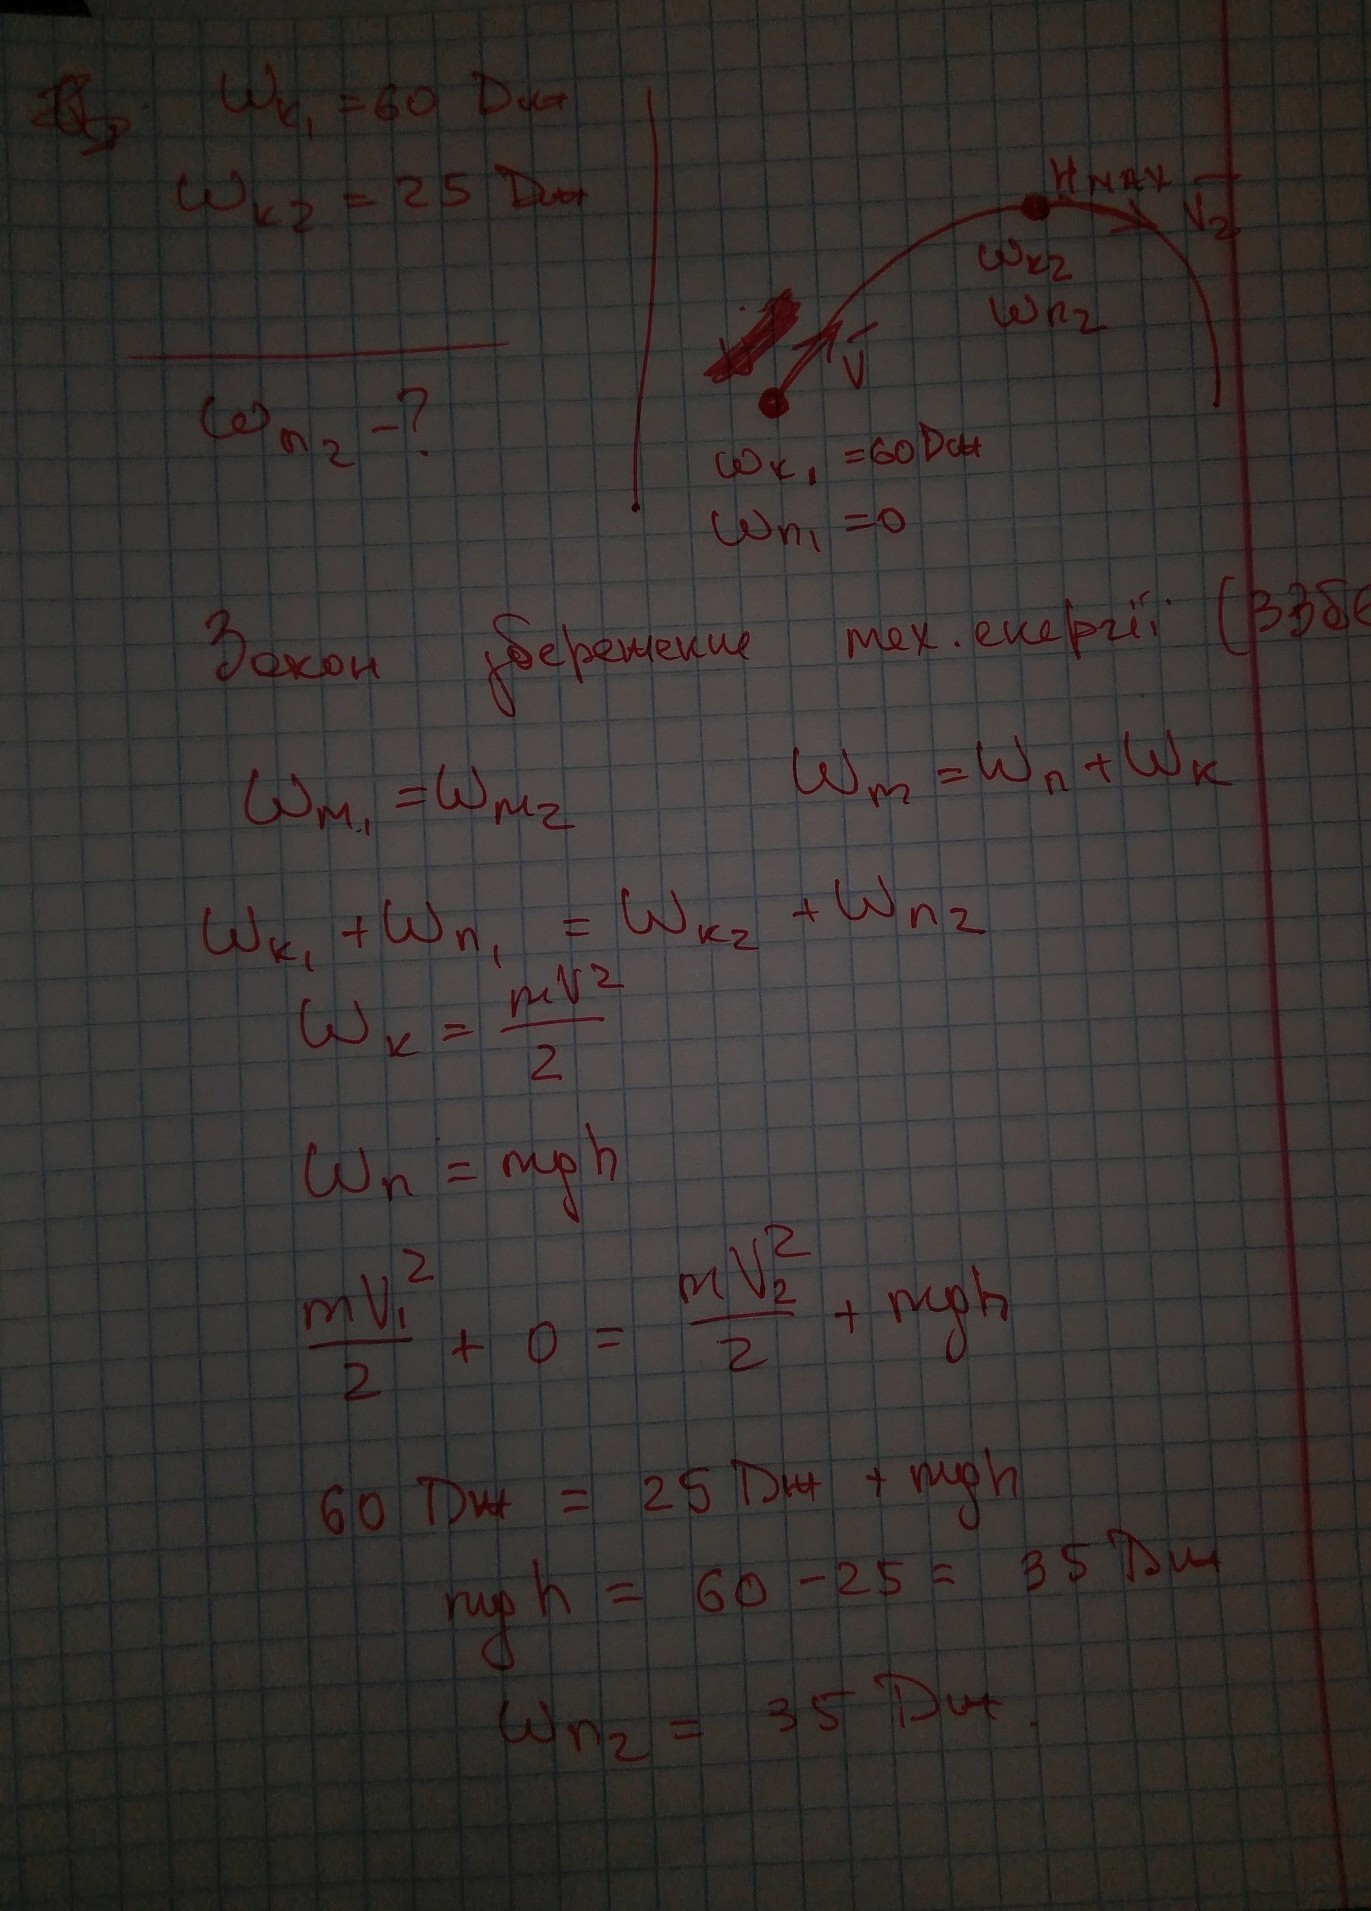 Wк₁ = 60 Дж
Wк2 = 25 Дж
Wп2 - ?
HMAX V2
Wк2
Wп2
V
Wк₁ = 60 Дж
Wп₁ = 0
Закон збережение мех. енергії (ЗЗБЕ
Wм₁ = Wм2 Wm = Wп + Wк
Wк₁ + Wп₁ = Wк2 + Wп2
Wк = mV²/2
Wп = mgh
mV₁²/2 + 0 = mV₂²/2 + mgh
60 Дж = 25 Дж + mgh
mgh = 60 - 25 = 35 Дж
Wп2 = 35 Дж.